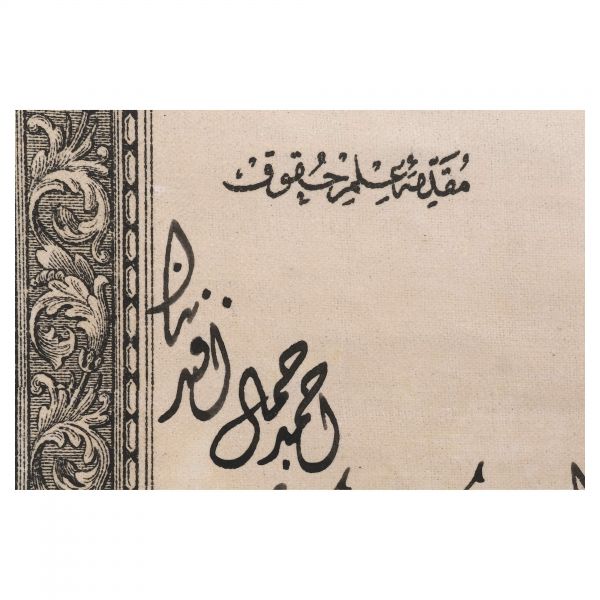 مُقَدِّمَهٔ عِلْمِ حُقُوق
احمد جمال افندینك